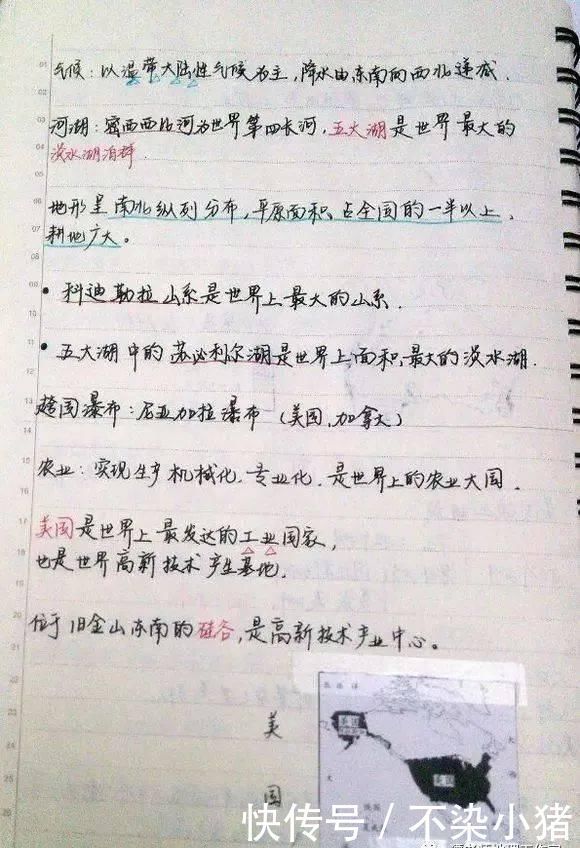 气候：以温带大陆性气候为主，降水由东南向西北递减．
河湖：密西西比河为世界第四长河，五大湖是世界最大的
淡水湖泊群．
地形呈南北纵列分布，平原面积占全国的一半以上，
耕地广大。
• 科迪勒拉山系是世界上最大的山系．
• 五大湖中的苏必利尔湖是世界上面积最大的淡水湖．
跨国瀑布：尼亚加拉瀑布（美国，加拿大）
农业：实现生产机械化，专业化，是世界上的农业大国．
美国是世界上最发达的工业国家，
也是世界高新技术产生基地．
位于旧金山东南的硅谷，是高新技术产业中心。
美
国
美国
美国
快传号／不染小猪